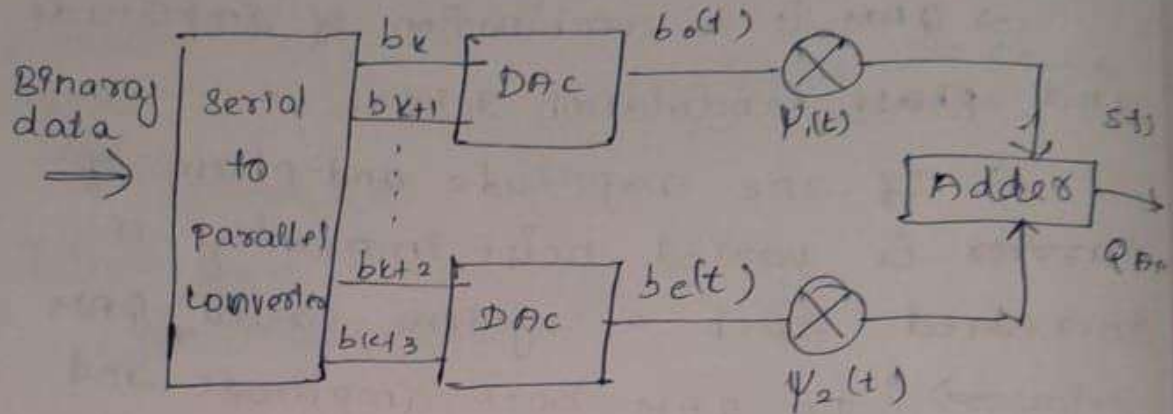 Binary
data
Serial
to
Parallel
Converter
bk
bk+1
bk+2
bk+3
DAC
b0(t)
ψ1(t)
DAC
be(t)
ψ2(t)
Adder